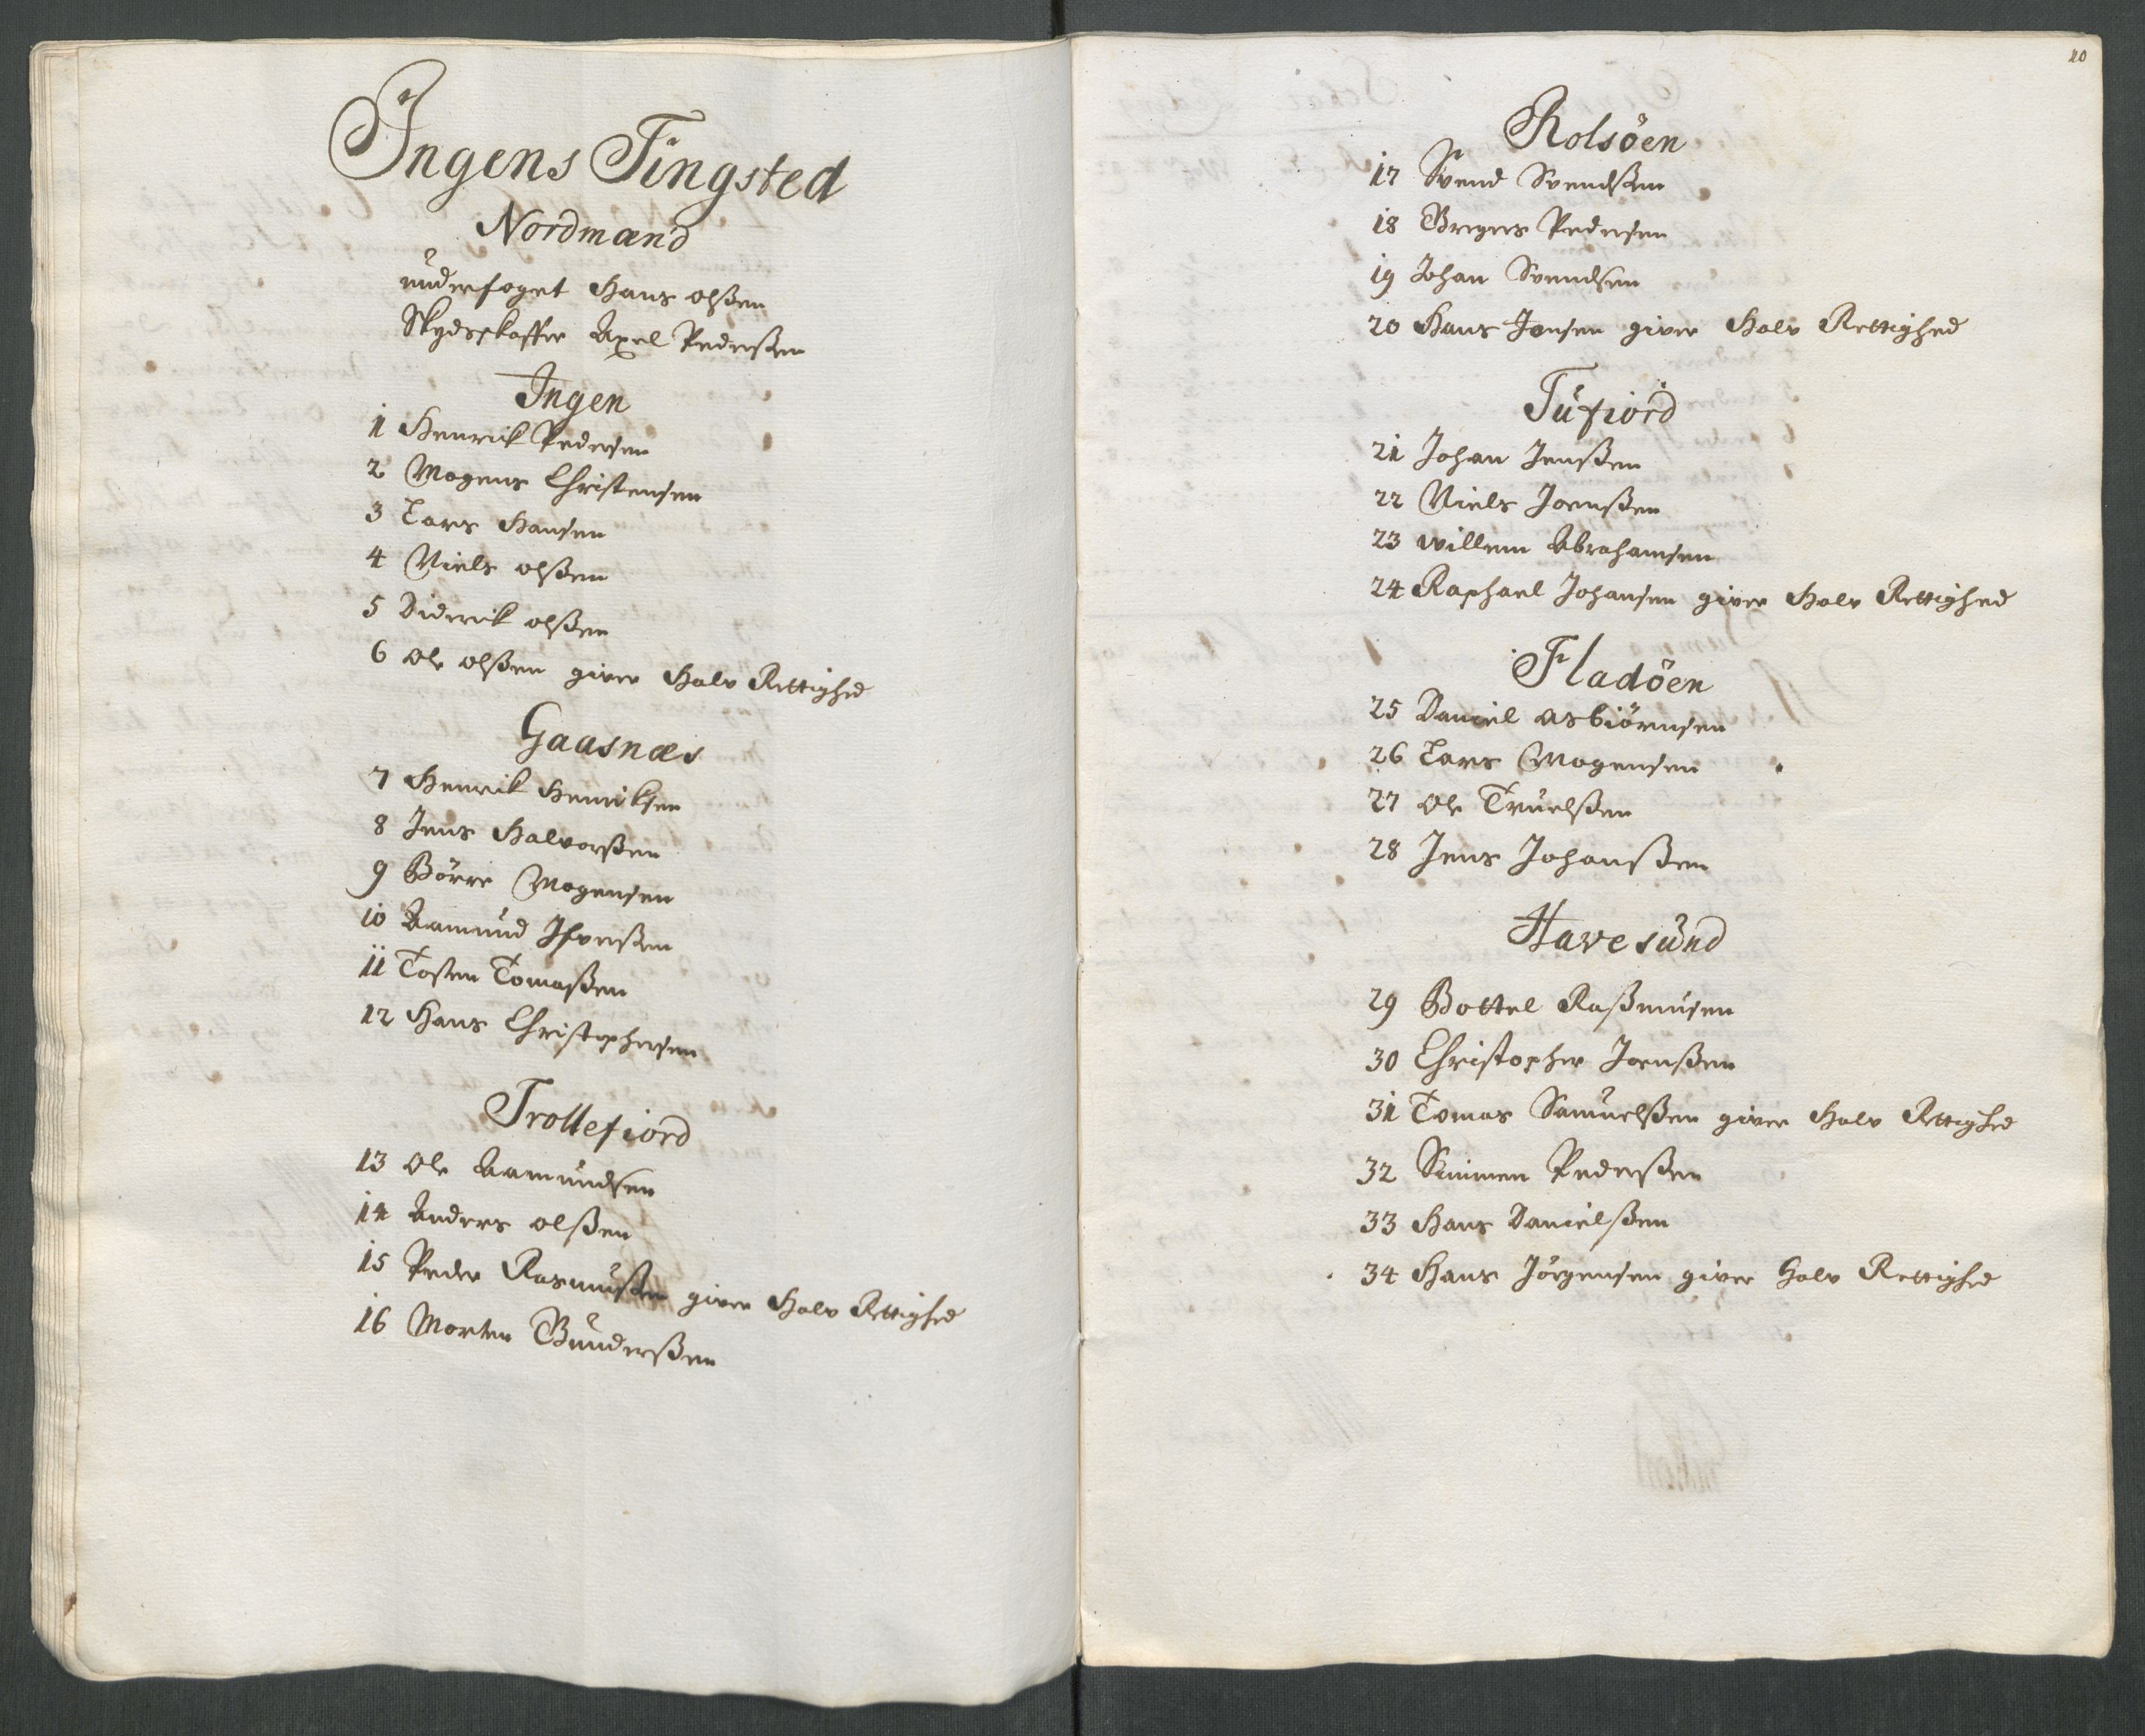 Ingens Tingsted
Nordmænd
underfoget Hans olßen
Skydsskaffer Axel Pederßen
Ingen
1 Henrick Pedersen
2 Mogens Christensen
3 Lars Hansen
4 Niels olßen
5 Diderick olßen
6 Ole olßen giver Halv Rettighed
Gaasnæs
7 Henrik Henriksen
8 Jens Halvorßen
9 Börre Mogensen
10 Aamund Ifverßen
11 Tosten Tomaßen
12 Hans Christophersen
Trollefiord
13 Ole Aamundsen
14 Anders olßen
15 Peder Rasmusßen giver Halv Rettighed
16 Morten Gunderßen
10
Rolsöen
17 Svend Svendßen
18 Breger Pedersen
19 Johan Svendsen
20 Hans Jensen giver Halv Rettighed
Tufiord
21 Johan Jenßen
22 Niels Joenßen
23 Willem Abrahamsen
24 Raphael Johansen giver Halv Rettighed
Fladöen
25 Daniel Asbiörnsen
26 Lars Mogensen
27 Ole Truelßen
28 Jens Johanßen
Havesund
29 Bottel Raßmusen
30 Christopher Joenßen
31 Tomas Samuelßen giver Halv Rettighed
32 Simmen Pederßen
33 Hans Danielßen
34 Hans Jörgensen giver Halv Rettighed